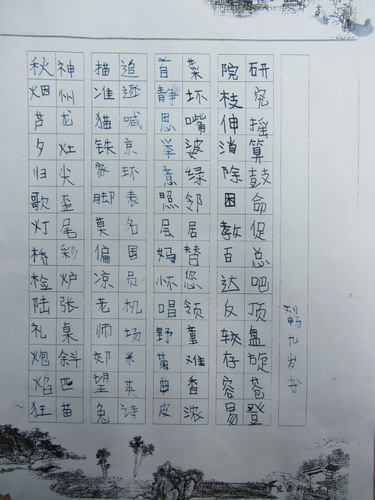 刘畅九岁书
研究摇算鼓命促总吧顶盘旋苍登
院枝伸消除困教百达反较存容易
菜坏嘴婆绿邻居替您领童难香浓
首静思举意照层妈怀唱野菊曲皮
追喊京环表名国员机场米英诗
描准猫铁脚莫偏凉老师郊望兔
神州龙灶尖歪尾彩炉张桌斜匹苗
秋烟芦夕归歌灯标检陆礼炮焰狂